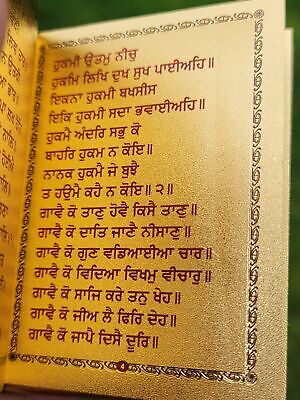 ਹੁਕਮੀ ਉਤਮੁ ਨੀਚੁ
ਹੁਕਮਿ ਲਿਖਿ ਦੁਖ ਸੁਖ ਪਾਈਅਹਿ॥
ਇਕਨਾ ਹੁਕਮੀ ਬਖਸੀਸ
ਇਕਿ ਹੁਕਮੀ ਸਦਾ ਭਵਾਈਅਹਿ॥
ਹੁਕਮੈ ਅੰਦਰਿ ਸਭੁ ਕੋ
ਬਾਹਰਿ ਹੁਕਮ ਨ ਕੋਇ॥
ਨਾਨਕ ਹੁਕਮੈ ਜੇ ਬੁਝੈ
ਤ ਹਉਮੈ ਕਹੈ ਨ ਕੋਇ॥੨॥
ਗਾਵੈ ਕੋ ਤਾਣੁ ਹੋਵੈ ਕਿਸੈ ਤਾਣੁ॥
ਗਾਵੈ ਕੋ ਦਾਤਿ ਜਾਣੈ ਨੀਸਾਣੁ॥
ਗਾਵੈ ਕੋ ਗੁਣ ਵਡਿਆਈਆ ਚਾਰ॥
ਗਾਵੈ ਕੋ ਵਿਦਿਆ ਵਿਖਮੁ ਵੀਚਾਰੁ॥
ਗਾਵੈ ਕੋ ਸਾਜਿ ਕਰੇ ਤਨੁ ਖੇਹ॥
ਗਾਵੈ ਕੋ ਜੀਅ ਲੈ ਫਿਰਿ ਦੇਹ॥
ਗਾਵੈ ਕੋ ਜਾਪੈ ਦਿਸੈ ਦੂਰਿ॥
4